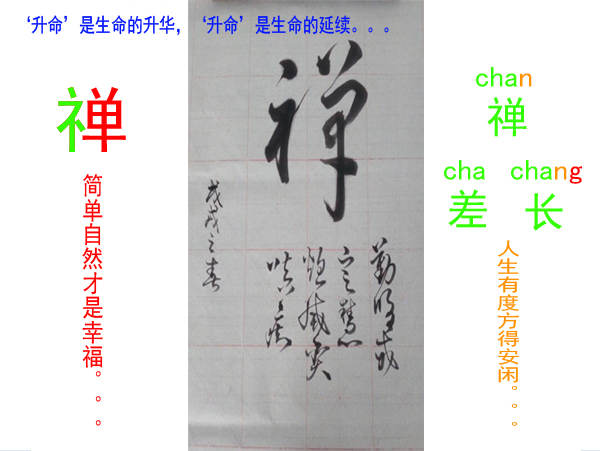 ‘升命’是生命的升华，‘升命’是生命的延续。。。
禅
简单自然才是幸福。。。
禅
勤修戒
定慧
嗔痴
戊戌之春
chan
禅
cha chang
差 长
人生有度方得安闲。。。